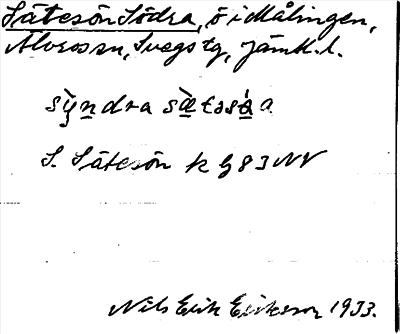 Sätesön Södra, ö i Målingen,
Älvros sn, Svegs tg, Jämtl. l.
sỳndra sæ̀təsà a
S. Sätesön k G 83 NV
Nils Erik Eriksson 1933.